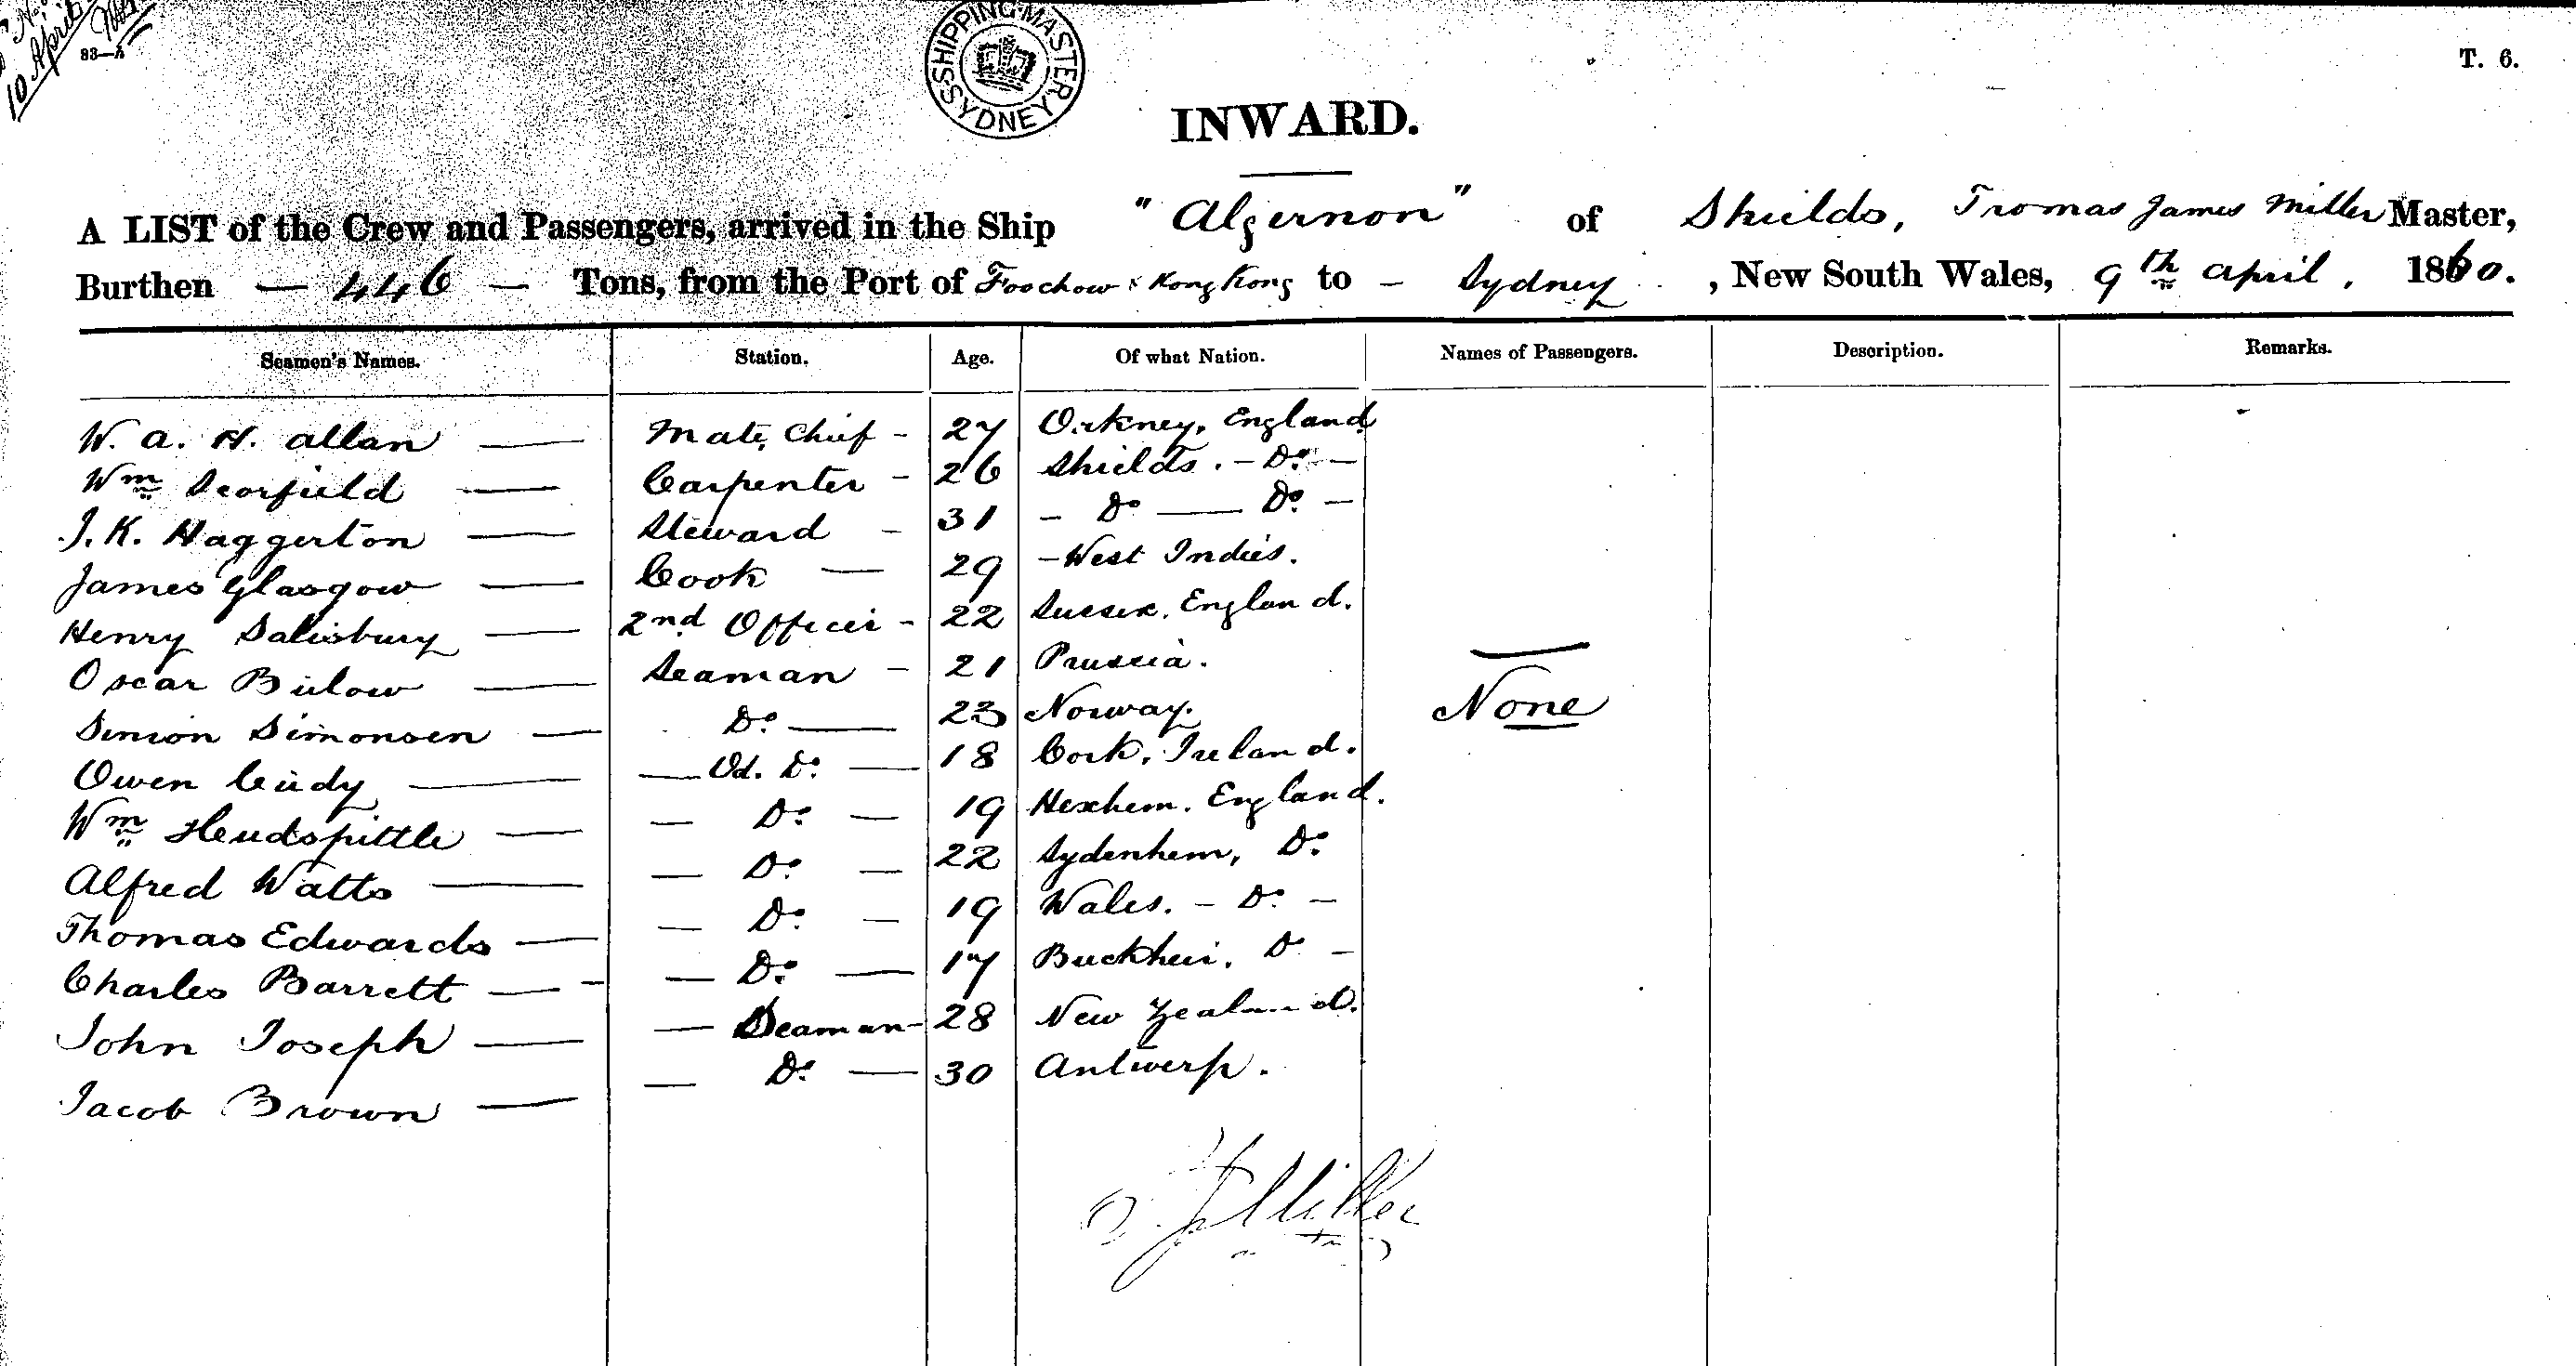 10 April
83—A
SHIPPING MASTER SYDNEY
T. 6.
INWARD.
A LIST of the Crew and Passengers, arrived in the Ship "Algernon" of Shields, Tromas James Miller Master,
Burthen — 446 — Tons, from the Port of Foochow & Hong Kong to – Sydney, New South Wales, 9th April, 1860.
Seamen's Names. Station. Age. Of what Nation. Names of Passengers. Description. Remarks.
W. A. H. Allan — Mate, Chief - 27 Orkney, England
Wm Scorfield — Carpenter - 26 Shields. - Do -
J. K. Haggerton — Steward - 31 - Do — Do -
James Glasgow — Cook — 29 - West Indies.
Henry Salisbury — 2nd Officer - 22 Sussex, England.
Oscar Bülow — Seaman - 21 Prussia.
Simon Simonsen — Do — 23 Norway. None
Owen Cudy — Od. Do — 18 Cork, Ireland.
Wm Heudspittle — Do — 19 Hexhem. England.
Alfred Watts — Do — 22 Sydenhem, Do
Thomas Edwards — Do — 19 Wales. - Do -
Charles Barrett — Do — 17 Do -
John Joseph — Seaman - 28 New Zealand.
Jacob Brown — Do — 30 Antwerp.
Miller